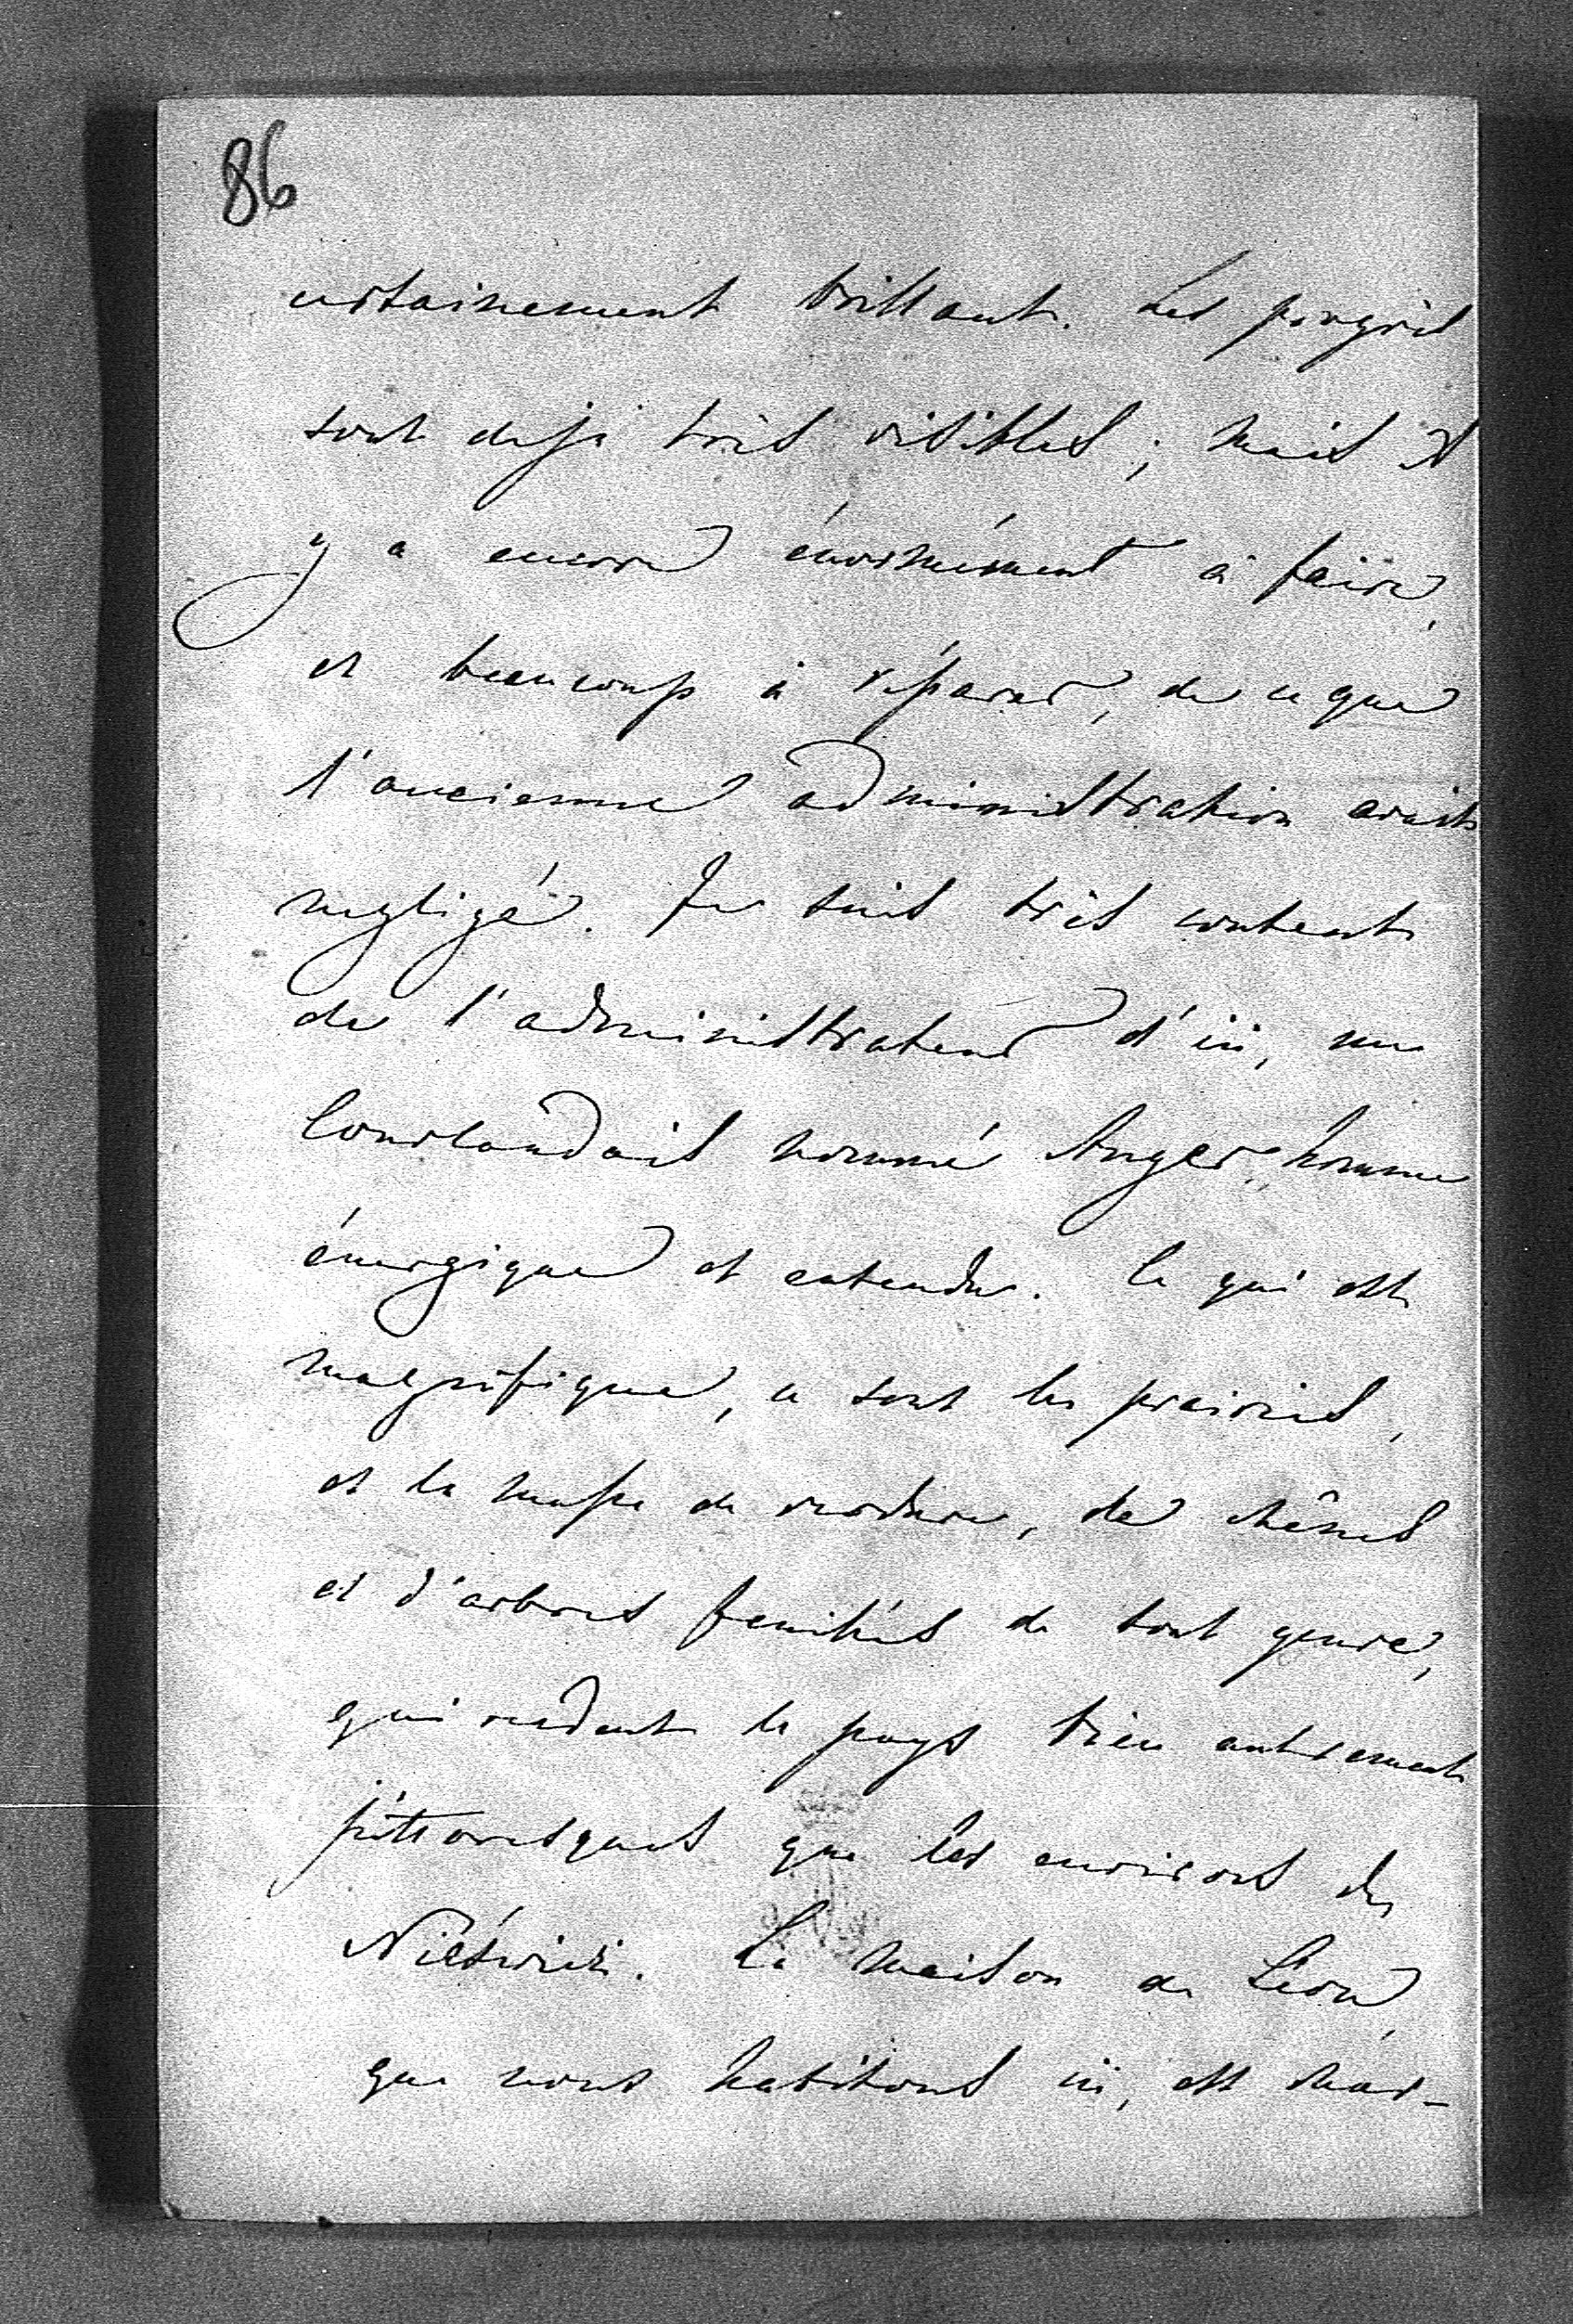 86
certainement brillant. Les progrès
sont deja très visibles; mais il
y a encore énormément à faire,
et beaucoup à réparer, de ce que
l'ancienne administration avait
negligé. Je suis très content
de l'administrateur d'ici, un
Courlandais nommé Unger, homme
énergique et entendu. Ce qui est
magnifique, ce sont les prairies,
et la masse de verdure, de chênes
et d'arbres fruitiés de tout genre,
qui rendent le pays bien autrement
pittoresques que les environs de
Nieśwież. La maison de Léon,
que nous habitons ici, est char-